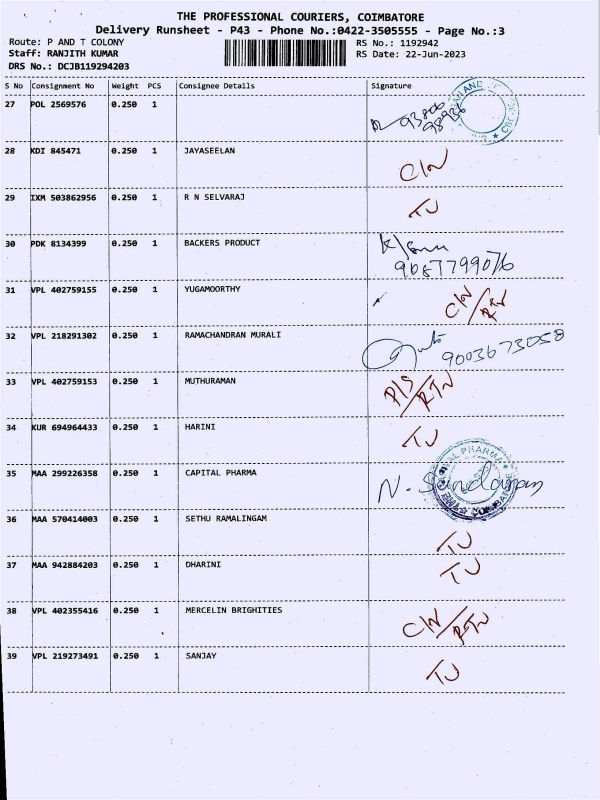 THE PROFESSIONAL COURIERS, COIMBATORE
Delivery Runsheet - P43 - Phone No.:0422-3505555 - Page No.:3
Route: P AND T COLONY RS No.: 1192942
Staff: RANJITH KUMAR RS Date: 22-Jun-2023
DRS No.: DCJB119294203
S No Consignment No Weight PCS Consignee Details Signature
27 POL 2569576 0.250 1
28 KDI 845471 0.250 1 JAYASEELAN
C/N
29 IXM 503862956 0.250 1 R N SELVARAJ
TJ
30 PDK 8134399 0.250 1 BACKERS PRODUCT
9087799076
31 VPL 402759155 0.250 1 YUGAMOORTHY
C/N/RTN
32 VPL 218291302 0.250 1 RAMACHANDRAN MURALI
9003673058
33 VPL 402759153 0.250 1 MUTHURAMAN
P/S/RTN
34 KUR 694964433 0.250 1 HARINI
TJ
35 MAA 299226358 0.250 1 CAPITAL PHARMA
N. Sundaram
36 MAA 570414003 0.250 1 SETHU RAMALINGAM
TJ
37 MAA 942884203 0.250 1 DHARINI
TJ
38 VPL 402355416 0.250 1 MERCELIN BRIGHITIES
C/N/RTN
39 VPL 219273491 0.250 1 SANJAY
TJ